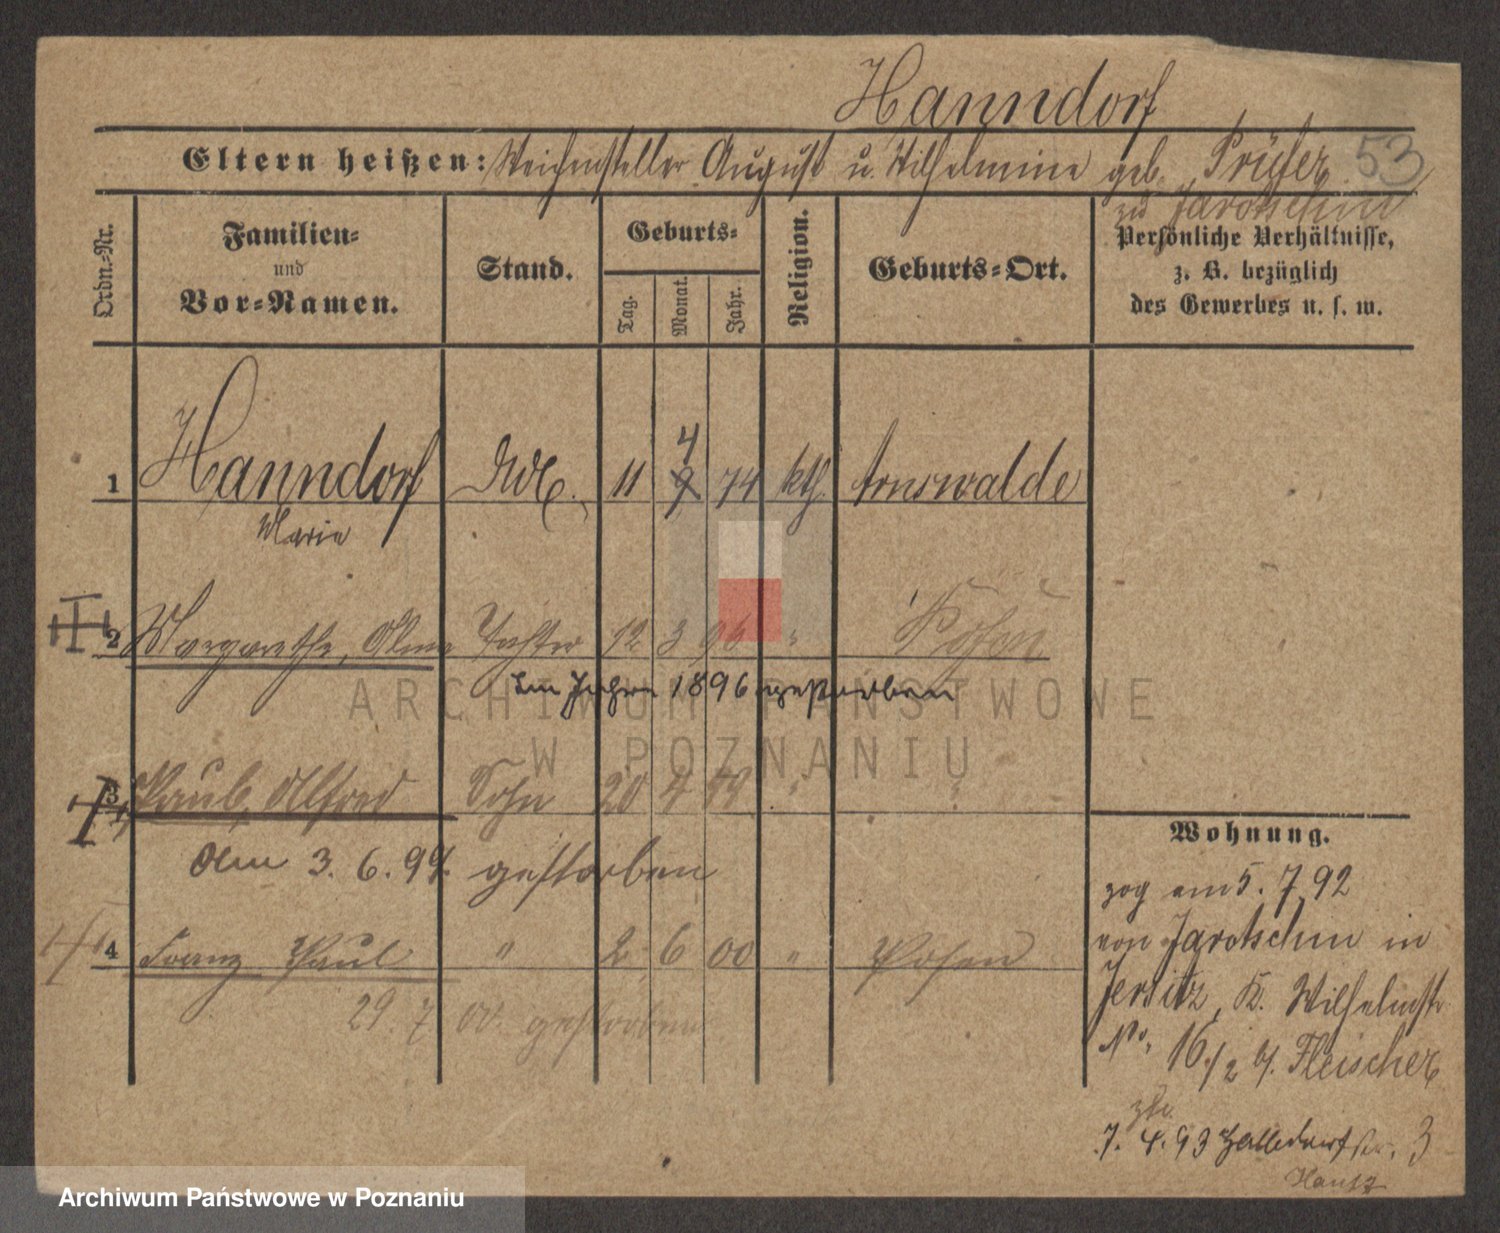 Hanndorf
Eltern heißen: Weichensteller August u. Wilhelmine geb. Prüfer 53
zu Jarotschin
Ordn.-Nr.
Familien-
und
Vor-Namen.
Stand.
Geburts-
Tag.
Monat.
Jahr.
Religion.
Geburts-Ort.
Persönliche Verhältnisse,
z. B. bezüglich
des Gewerbes u. s. w.
1 Hanndorf 11 4 9 74 kth. Arnswalde
Marie
2 Margarethe, Tochter 12 3 96 " Posen
Im Jahre 1896 gestorben
3 Paul, Alfred Sohn 20 4 " "
Am 3. 6. 99. gestorben
4 Franz Paul " 2 6 00 " Posen
29. 7. 00. gestorben
Wohnung.
zog am 5. 7. 92
von Jarotschin in
Jersitz, K. Wilhelmstr
No. 16/2 b/. Fleischer
7. 4. 93 3
ARCHIWUM PAŃSTWOWE
W POZNANIU
Archiwum Państwowe w Poznaniu